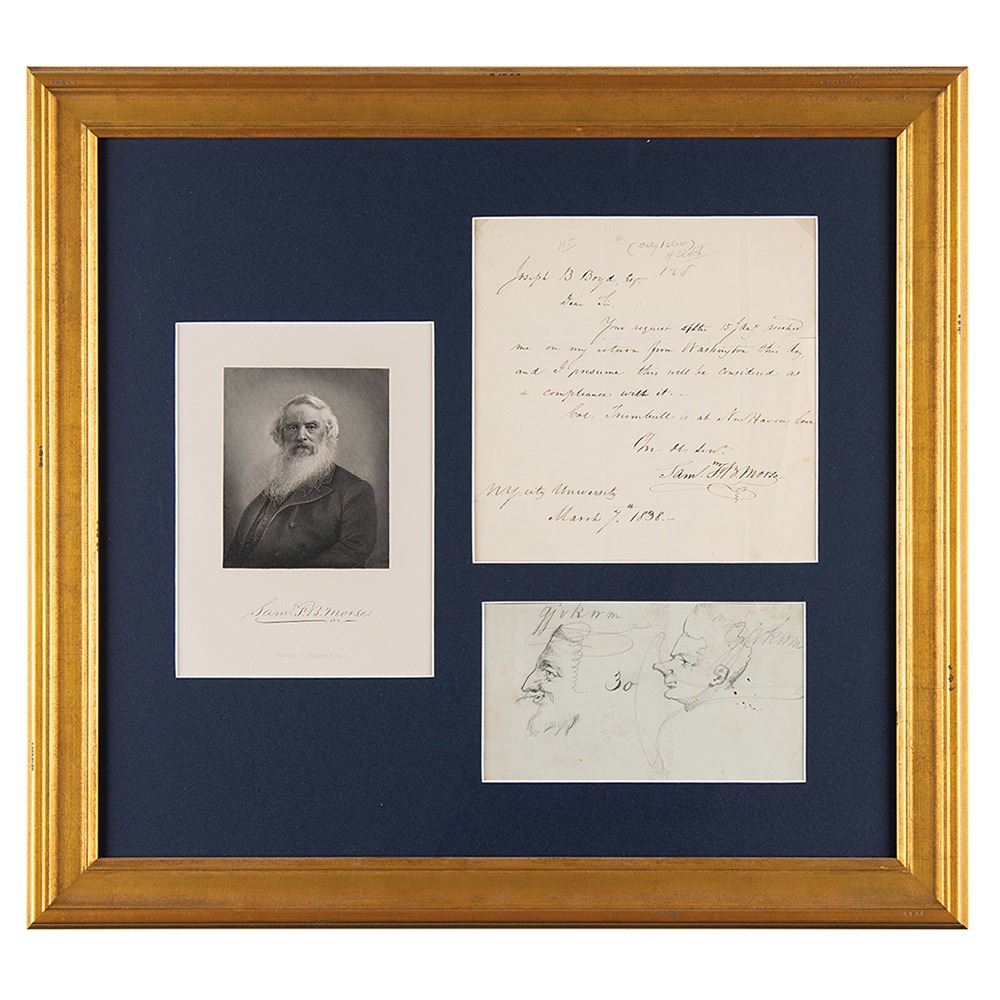 Sam.l F. B. Morse
115
(Only 1 sheet)
of sketch
128
Joseph B Boyd, Esq
Dear Sir,
Your request of the 15 Jan.y reached
me on my return from Washington this day,
and I presume this will be considered as
a compliance with it. –
Col. Trumbull is at New Haven, Conn
Yr. Ob. Serv.t
Sam.l F. B. Morse.
N Y city University
March 7.th 1838. –
qjvkwm
30